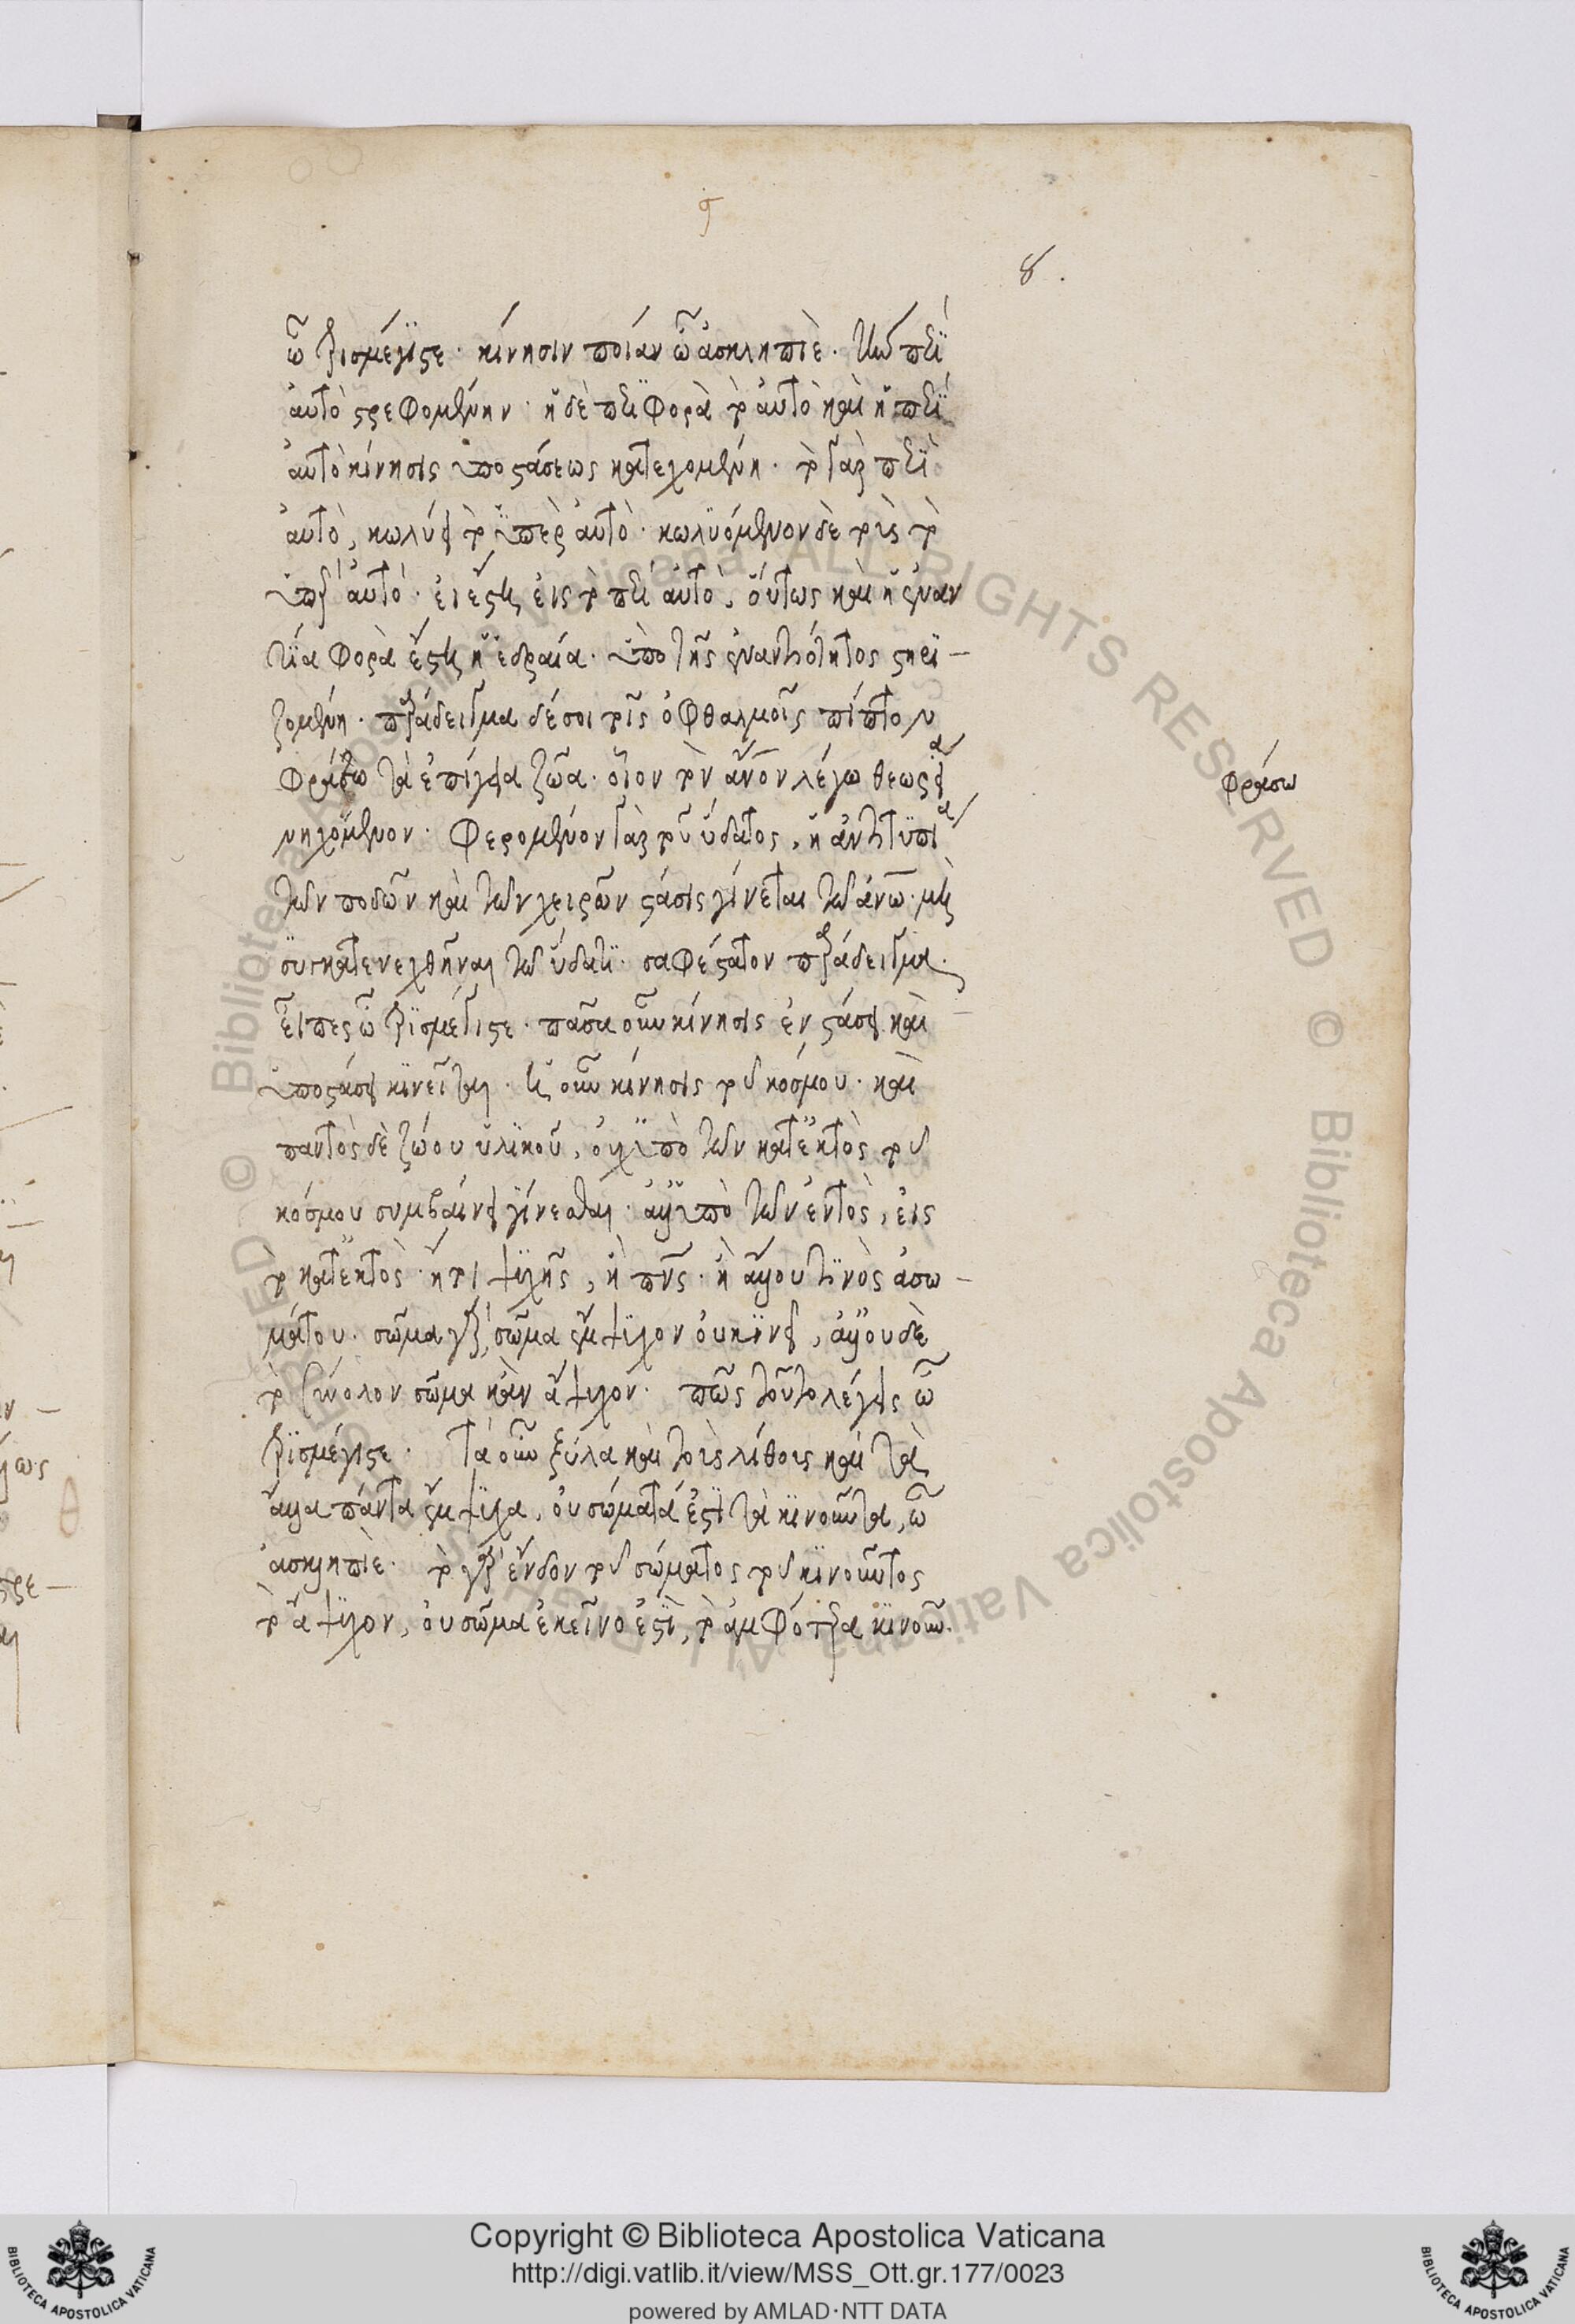 ϛ
8.
ὦ τρισμέγιστε· κίνησιν ποίαν ὦ ἀσκληπιὲ· τὴν περὶ
αὐτὸ στρεφομένην· ἡ δὲ περιφορὰ τὸ αὐτὸ καὶ ἡ περὶ
αὐτὸ κίνησις ὑπὸ στάσεως κατεχομένη· τὸ γὰρ περὶ
αὐτὸ, κωλύει τὸ ὑπὲρ αὐτὸ· κωλυόμενον δὲ τὸ
ὑπὲρ αὐτὸ· εἰ ἔστη εἰς τὸ περὶ αὐτὸ, οὕτως καὶ ἡ ἐναν
τία φορὰ ἔστη ἡ ἑδραία· ὑπὸ τῆς ἐναντιότητος στηρι-
ζομένη· παράδειγμα δέ σοι τοῖς ὀφθαλμοῖς πίπτον
φράσω τὰ ἐπίγεια ζῶα· οἷον τὸν ἄνον λέγω θεώρει
νηχόμενον· φερομένου γὰρ τοῦ ὕδατος, ἡ ἀντιτυπία
τῶν ποδῶν καὶ τῶν χειρῶν στάσις γίνεται τῶ ἀνω· μὴ
συγκατενεχθῆναι τῶ ὕδατι· σαφέστατον παράδειγμα
εἶπες ὦ τρισμέγιστε· πᾶσα οὖν κίνησις ἐν στάσει καὶ
ὑπὸ στάσει κινεῖται· ἡ οὖν κίνησις τοῦ κόσμου· καὶ
παντὸς δὲ ζώου ὑλικοῦ, οὐχ ὑπὸ τῶν κατ' ἐκτὸς τοῦ
κόσμου συμβαίνει γίνεσθαι· ἀλλ' ὑπὸ τῶν ἐντὸς, εἰς
τὸ κατ' ἐκτὸς· ἤτοι ψυχῆς, ἢ πνς· ἢ ἄλλου τινὸς ἀσω-
μάτου· σῶμα γὰρ, σῶμα ἔμψυχον οὐ κινεῖ, ἀλλ' οὐδὲ
τὸ σύνολον σῶμα κἂν ἄψυχον· πῶς τοῦτο λέγεις ὦ
τρισμέγιστε· Τὰ οὖν ξύλα καὶ τοὺς λίθους καὶ τὰ
ἄλλα πάντα ἔμψυχα, οὐ σώματά ἐστι τὰ κινοῦντα, ὦ
ἀσκληπιὲ· τὸ γὰρ ἔνδον τοῦ σώματος τοῦ κινοῦντος
τὸ ἄψυχον, οὐ σῶμα ἐκεῖνο ἐστὶ, τὸ ἀμφότερα κινοῦν·
φράσω
Copyright © Biblioteca Apostolica Vaticana
http://digi.vatlib.it/view/MSS_Ott.gr.177/0023
powered by AMLAD·NTT DATA